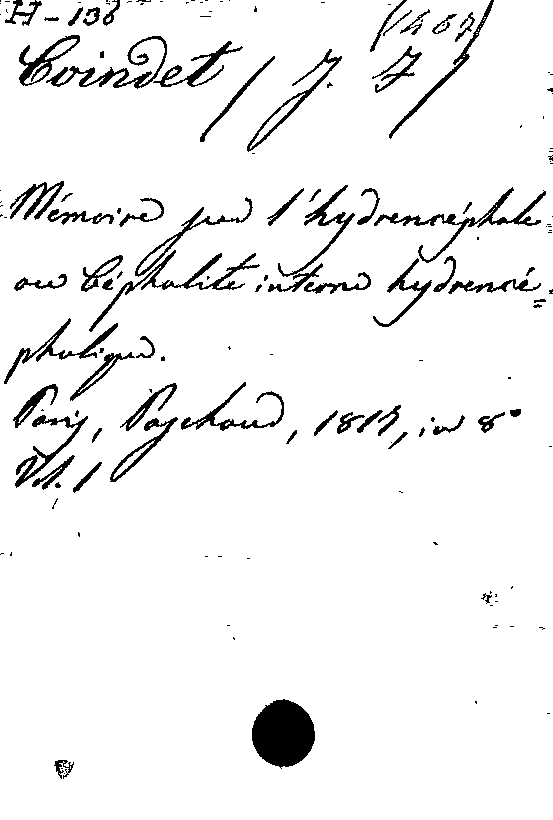 H - 138 (1467)
Coindet / J. F /
Mémoire sur l'hydrencéphale
ou Céphalite interne hydrencé=
phalique.
Paris, Paschoud, 1817, in 8°
Vol. 1